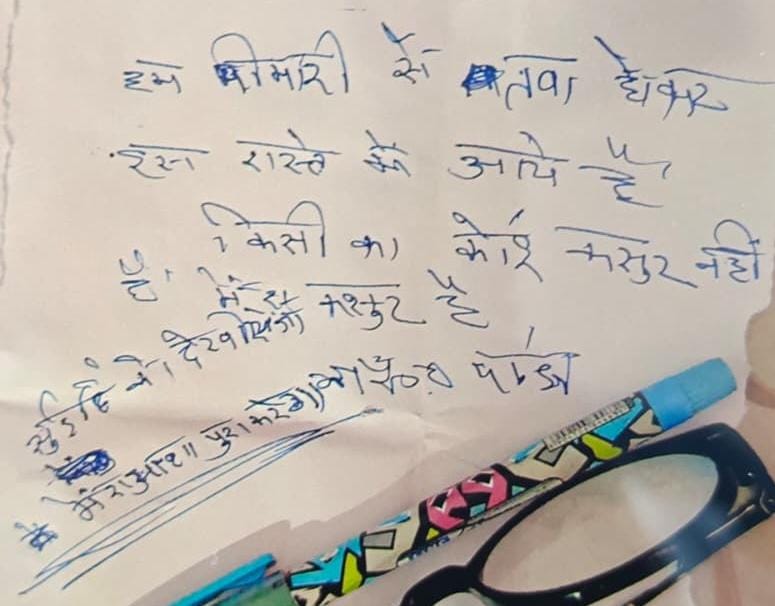 हम बीमारी से तवा होकर
इस रास्ते के आये है
किसी का कोई कसुर नहीं
है मेरा कसुर है
को देखियेगा
मेरा आशा पुरा करेगा